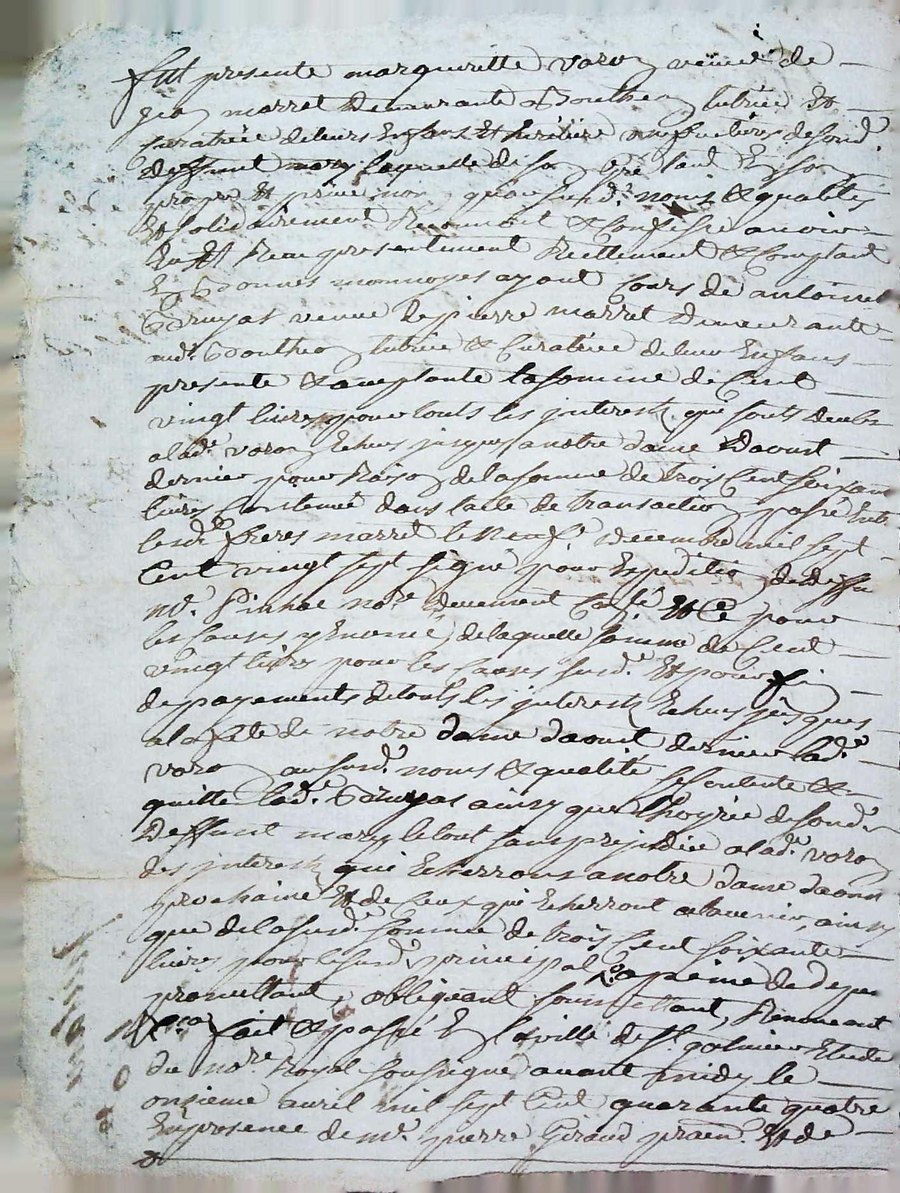 fut presente margueritte varon veuve de
jean marret demeurante a Boutheon tutrice Et
curatrice de leurs Enfans Et heritiere usufructière de sond.
deffunt mary laquelle de son gré tant En son
propre & privé nom qu'au susd. noms & qualités
Et solidairement Reconnoit & Confesse avoir
Eu Et Receu presentement Réellement & Comptant
En Bonnes monnoyes ayant Cours de antoinette
Bruyas veuve de pierre marret demeurante
aud. Boutheon tutrice & Curatrice de leur Enfans
presente & acceptante la somme de Cent
vingt livres pour touts les jnterests qui sont deubs
a lad. varon Echeus jusques a notre dame Daoust
dernier pour Raison de la somme de trois Cent soixante
livres Contenue dans lacte de transaction passé Entre
lesd. freres marret le neuf decembre mil sept
Cent vingt sept signé pour Expedition de deffu
me. no.re deuement Collé Et Ce pour
les causes y Enoncé, de laquelle somme de Cent
vingt livres pour les Causes susd. Et pour fin
de payements de touts les jnterests Echeus jusques
a la fete de notre dame daoust dernier lad.
varon au susd. noms & qualité se Contente &
quitte lad. Bruyas ainsy que lhoyrie de sond.
Deffunt mary le tout sans prejudice a lad. varon
des jnterests qui Echerront a notre dame daoust
prochaine Et de Ceux qui Echerront a lavenir, ainsy
que de la susd. somme de trois Cent soixante
livres pour le susd. principal a peine de depens
promettant, obligeant soumettant, Renonceant
fait & passé En la ville de St. galmier Etude
du no.re Royal soussigné avant midy le
onsieme avril mil sept Cent quarante quatre
En presence de me. pierre Giraud praen. Et de